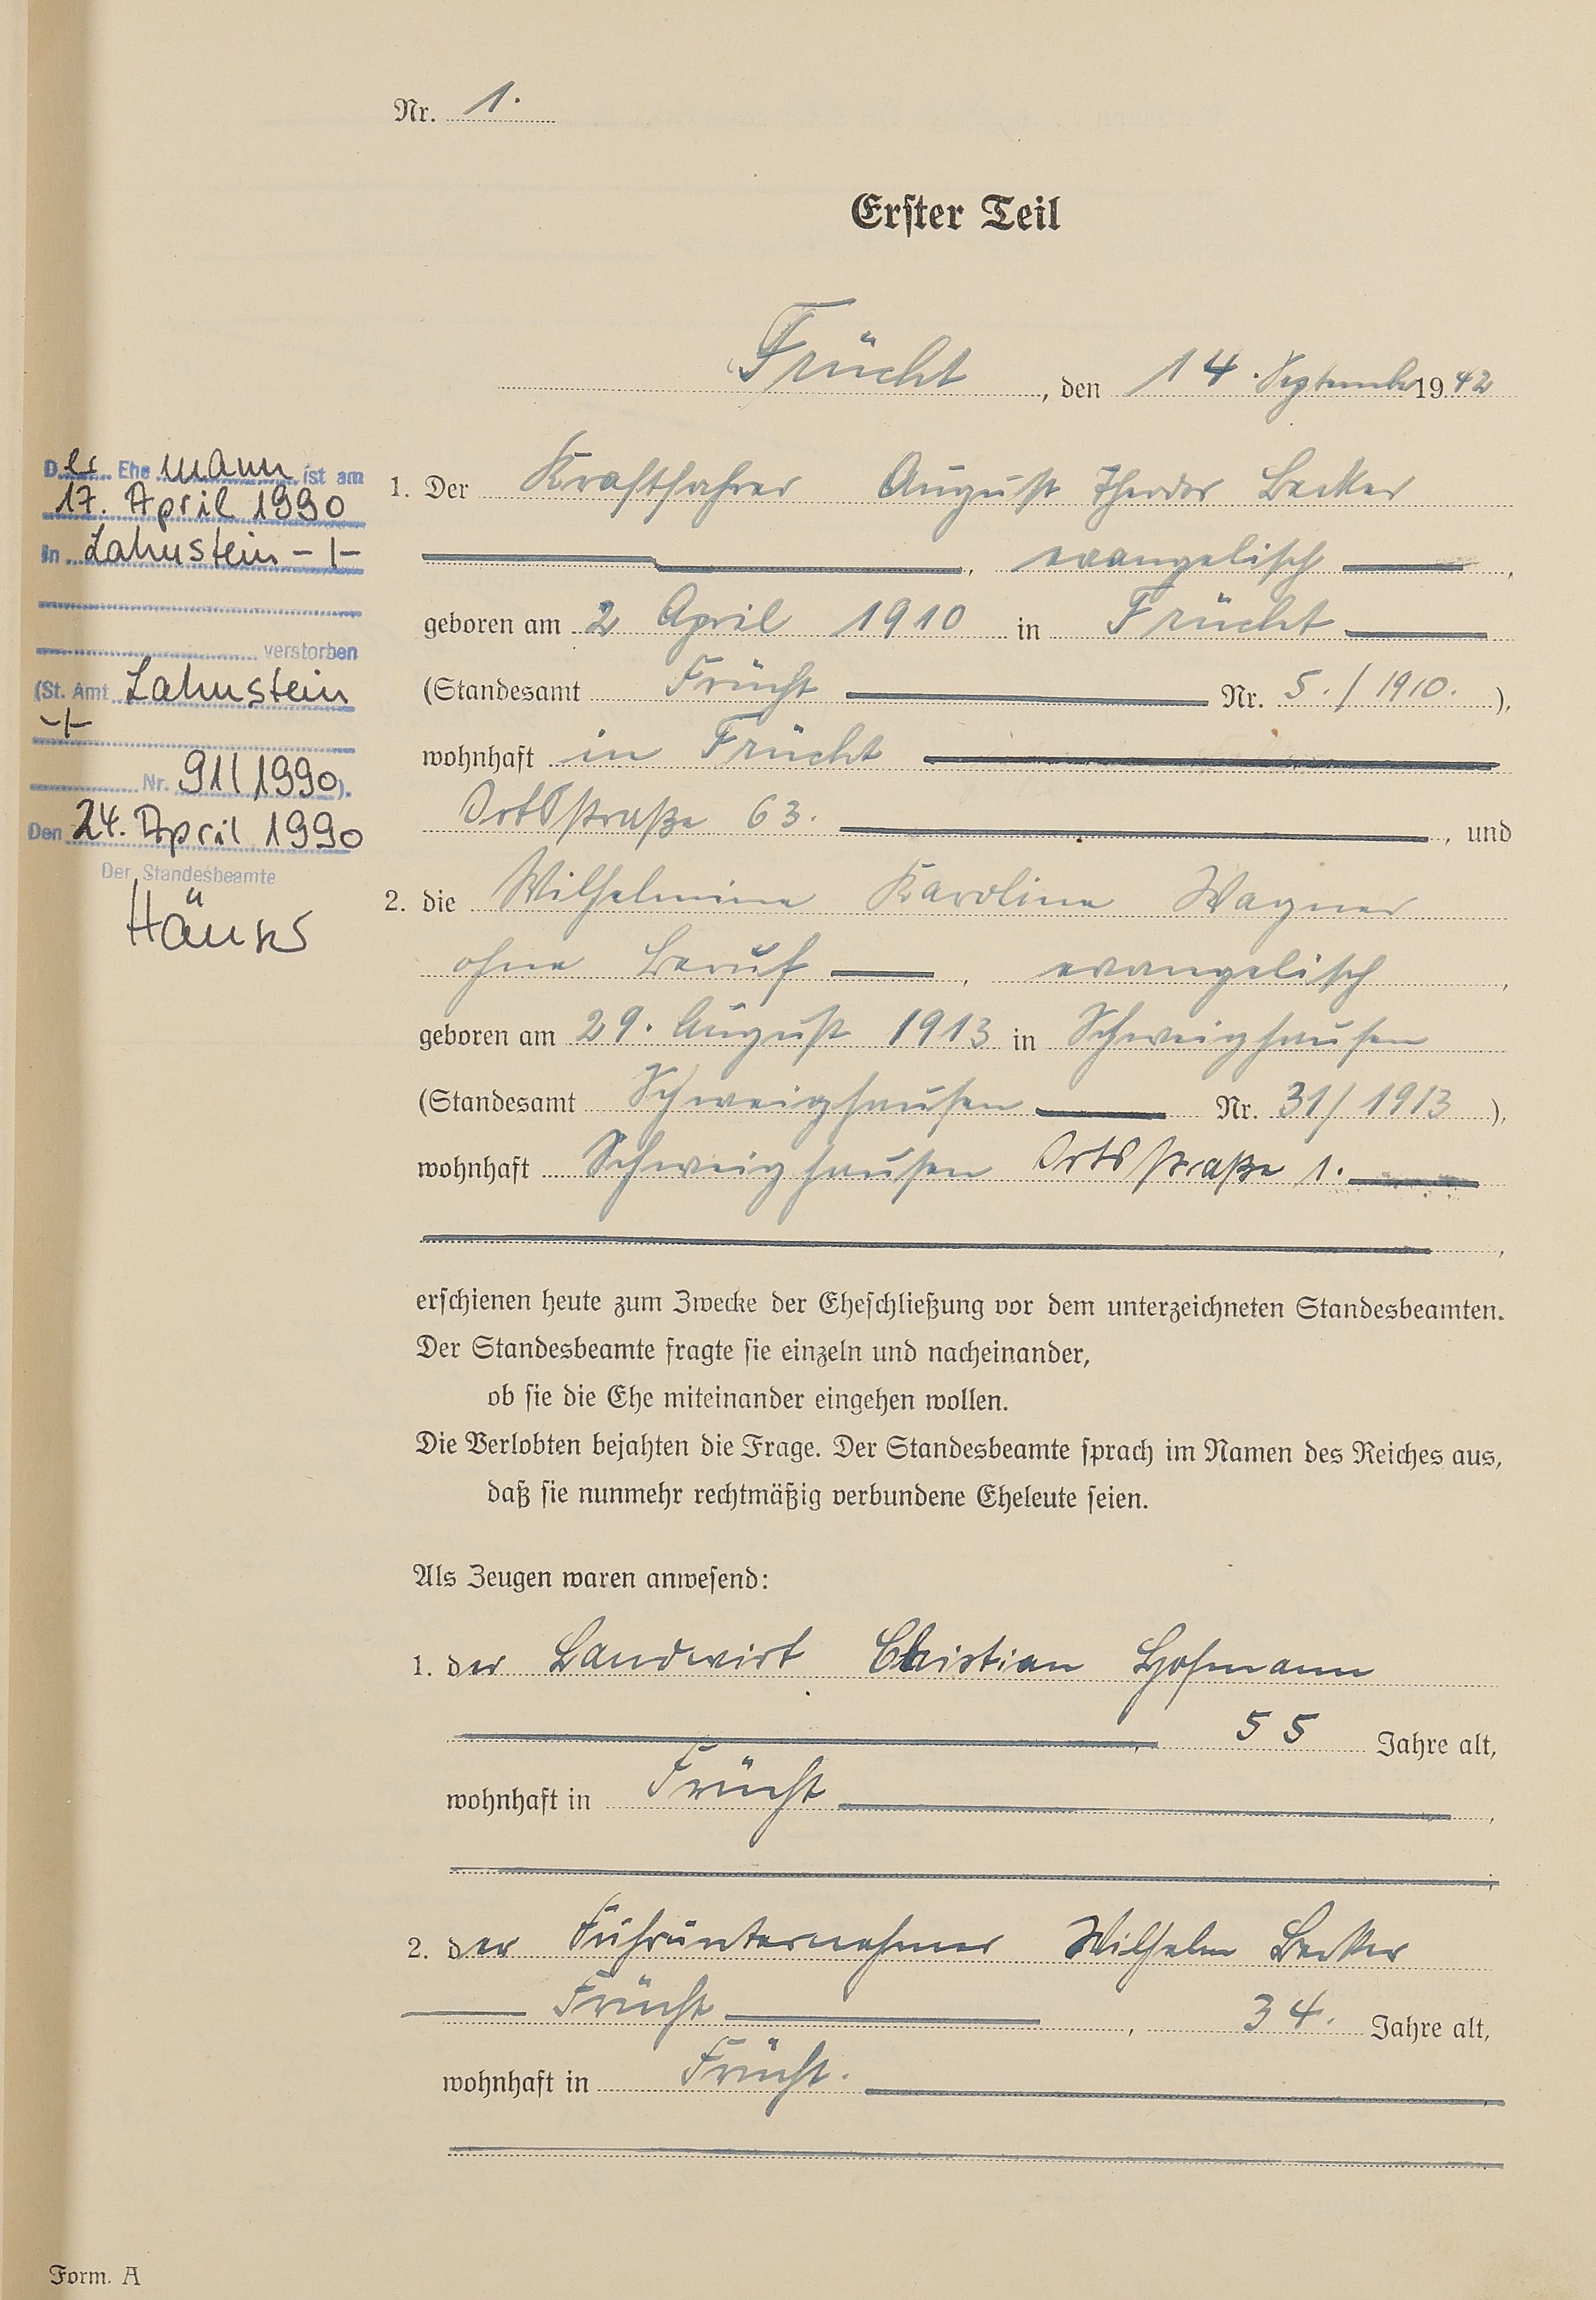 Nr. 1.
Erster Teil
Frücht, den 14. September 1942
1. Der Kraftfahrer August Theodor Becker
, evangelisch ,
geboren am 2 April 1910 in Frücht
(Standesamt Frücht Nr. 5./1910. ),
wohnhaft in Frücht
Ortsstraße 63. , und
2. die Wilhelmine Karoline Wagner
ohne Beruf , evangelisch ,
geboren am 29. August 1913 in Schweighausen
(Standesamt Schweighausen Nr. 31/1913 ),
wohnhaft Schweighausen Ortsstraße 1.
,
erschienen heute zum Zwecke der Eheschließung vor dem unterzeichneten Standesbeamten.
Der Standesbeamte fragte sie einzeln und nacheinander,
ob sie die Ehe miteinander eingehen wollen.
Die Verlobten bejahten die Frage. Der Standesbeamte sprach im Namen des Reiches aus,
daß sie nunmehr rechtmäßig verbundene Eheleute seien.
Als Zeugen waren anwesend:
1. der Landwirt Christian Hofmann
, 55 Jahre alt,
wohnhaft in Frücht ,
;
2. der Fuhrunternehmer Wilhelm Becker
Frücht , 34. Jahre alt,
wohnhaft in Frücht.
Der Ehemann ist am
17. April 1990
in Lahnstein -/-
verstorben
(St. Amt Lahnstein
-/-
Nr. 91/1990).
Den 24. April 1990
Der Standesbeamte
Form. A